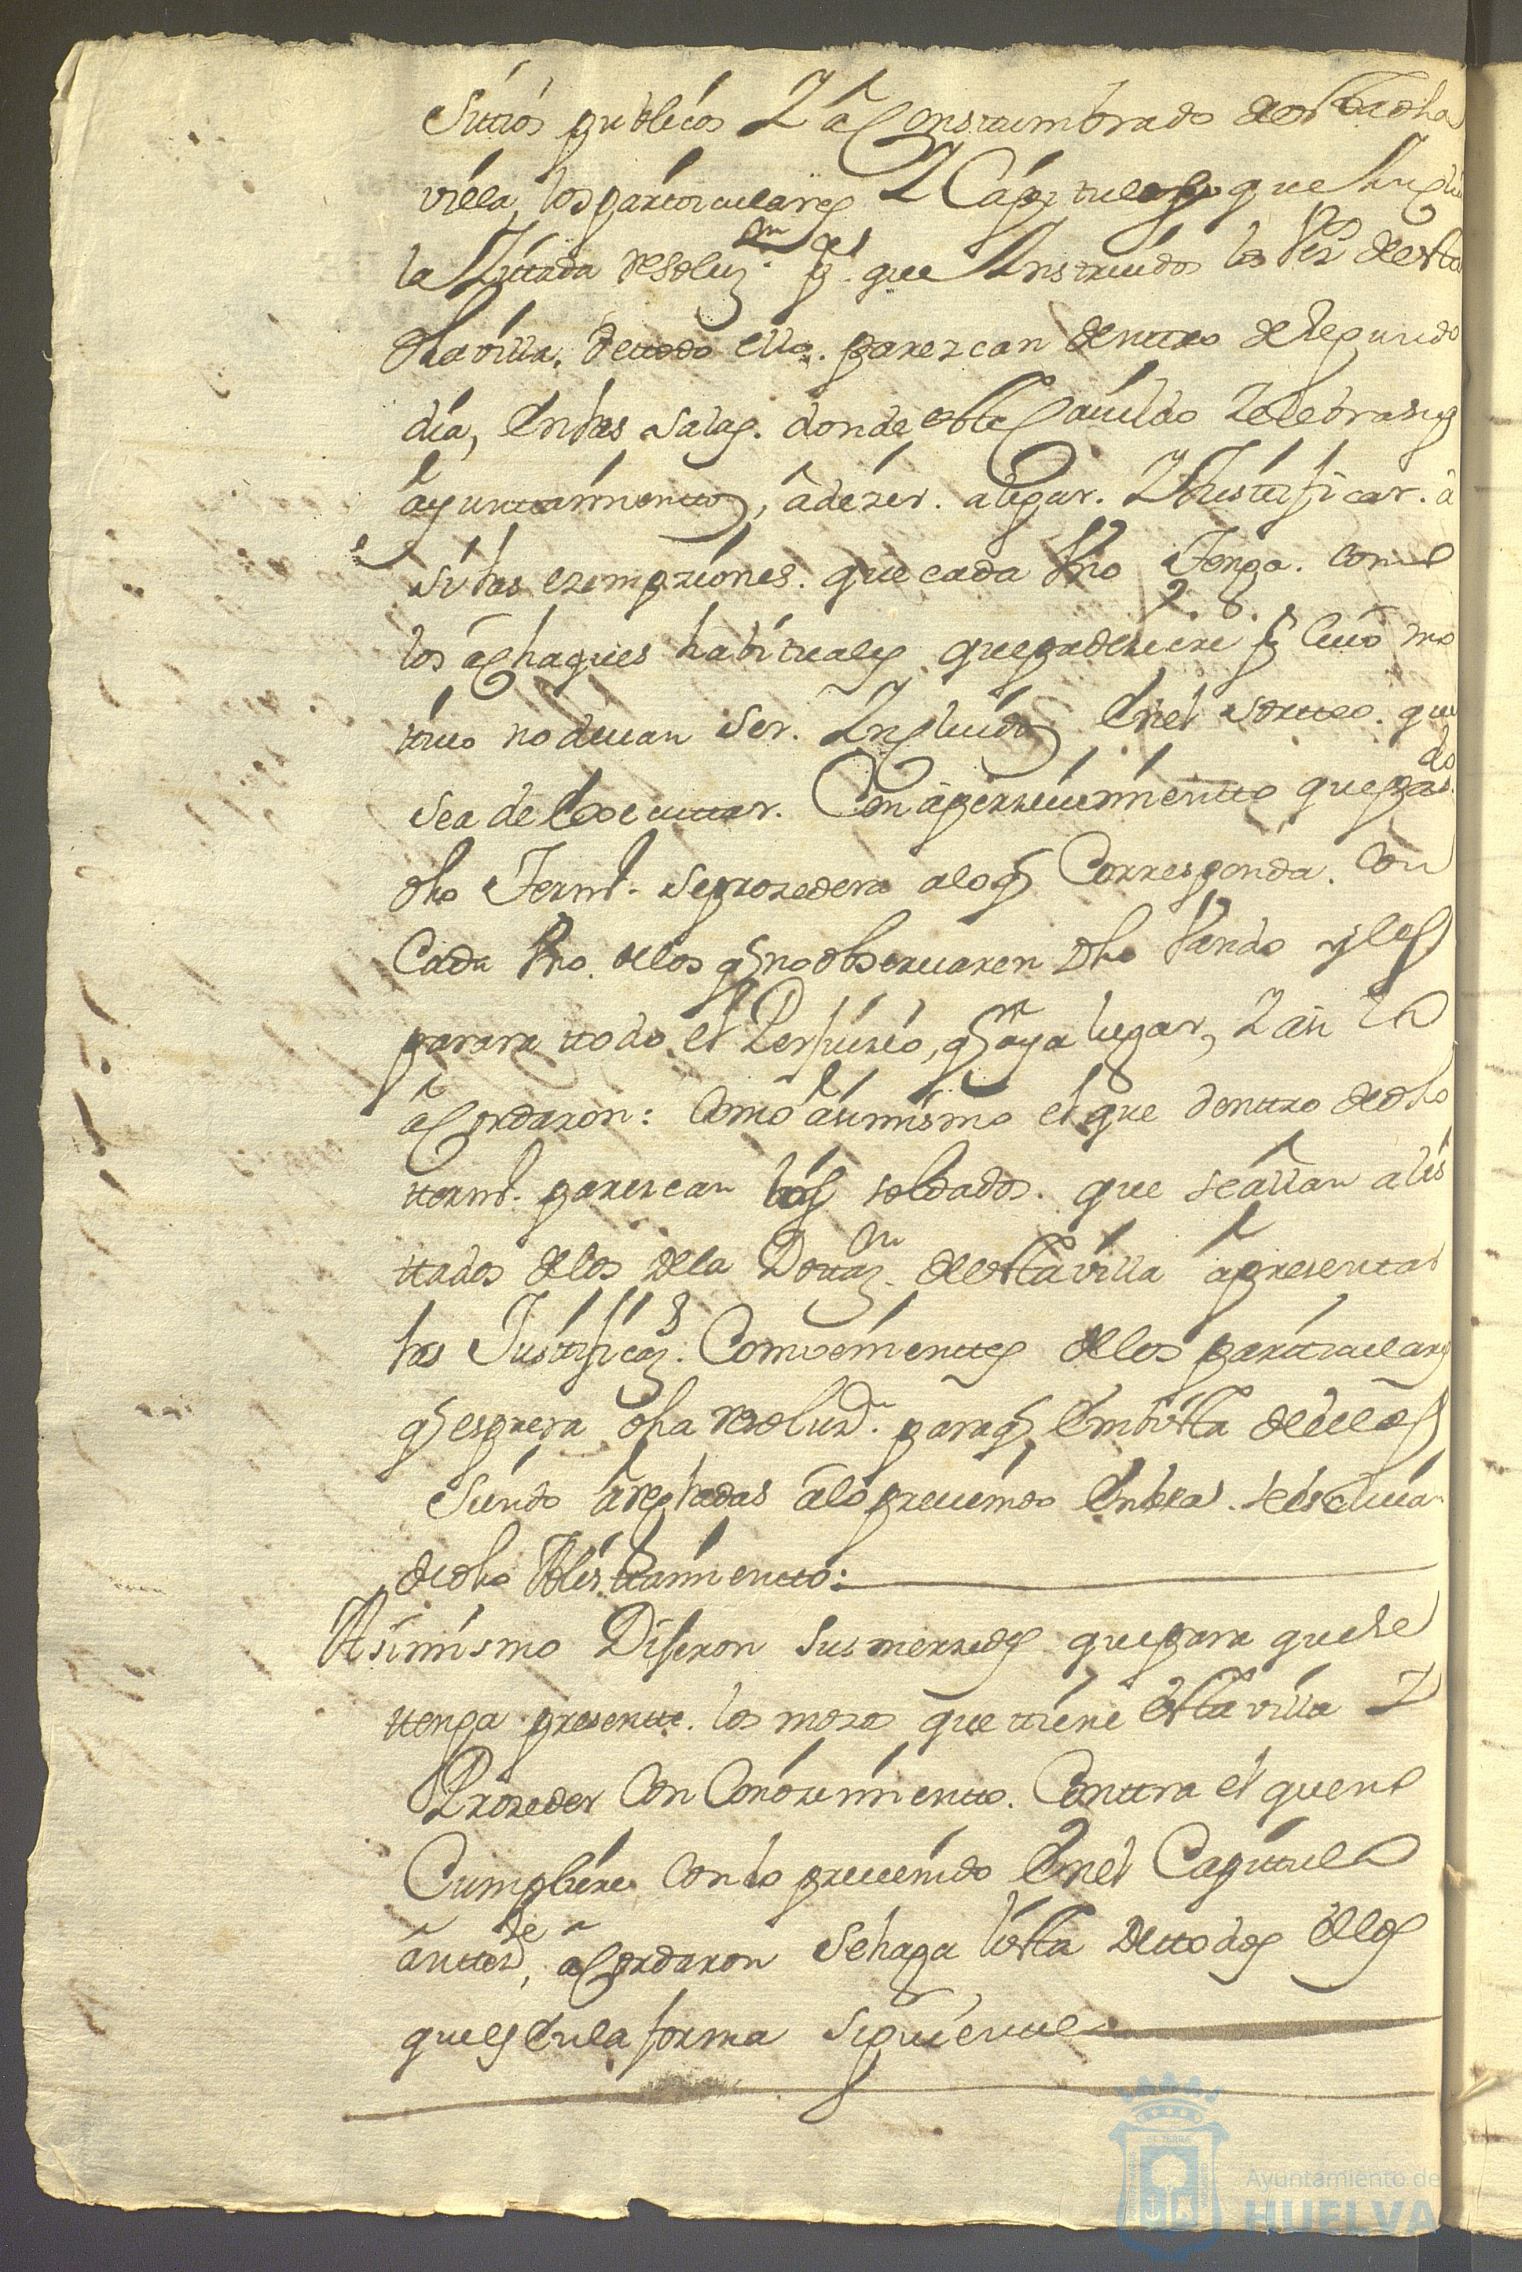 Sitios publicos Y aConstumbrado de esta dha
villa, los particulares Y Capitulos que Yncluie
la Zitada resoluzn. pa. que Ynstruidos los Vezos desta
dha villa. de ttodo ello. parezcan denttro de segundo
dia, En las salas. donde este Cauildo Zelebra sus
ayunttamienttos, â dezir. alegar. Y Justificar. a
si las exempziones. que cada Vno Tenga. como
los âchaques habituales que padeziere pr. Cuio mo
tiuo no deuan ser. Yncluidos En el sortteo. que
sea de Executtar. Con aperzeuimientto que pasdo.
dho Termo. se prozedera a lo q Corresponda. Con
Cada Vno. de los q no obseruaren dho Vando y les
parara ttodo el Perjuizio, q aya lugar, Y asi lo
âCordaron: Como âsimismo el que denttro de dho
ttermo. parezcan los soldados. que se allan alis
ttados de los de la Dottazn. de esta villa â presentar
las Justificazs. Combenienttes de los particulares
q espresa dha resoluzn. para q En vista de ellas
siendo arregladas â lo preuenido En ella. se escluian
de dho Alisttamientto:
Asimismo Dijeron sus merzedes que para que se
ttenga presentte. los mozos que ttiene esta villa Y
Prozeder Con Conozimientto. Conttra el que no
Cumpliere Con lo preuenido En el Capittulo
antezde, âCordaron Se haga lista de ttodos ellos
que es En la forma siguientte
Ayuntamiento de
HUELVA